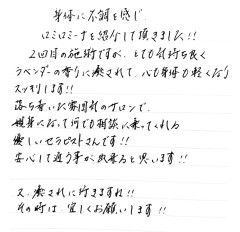 身体に不調を感じ、
ロミロミーナを紹介して頂きました!!
2回目の施術ですが、とても気持ち良く
ラベンダーの香りに癒されて、心も身体も軽くなり
スッキリします!!
落ち着いた雰囲気のサロンで、
親身になって何でも相談に乗ってくれる
優しいセラピストさんです!!
安心して通う事が出来ると思います!!
又、癒されに行きますね!!
その時は、宜しくお願いします!!